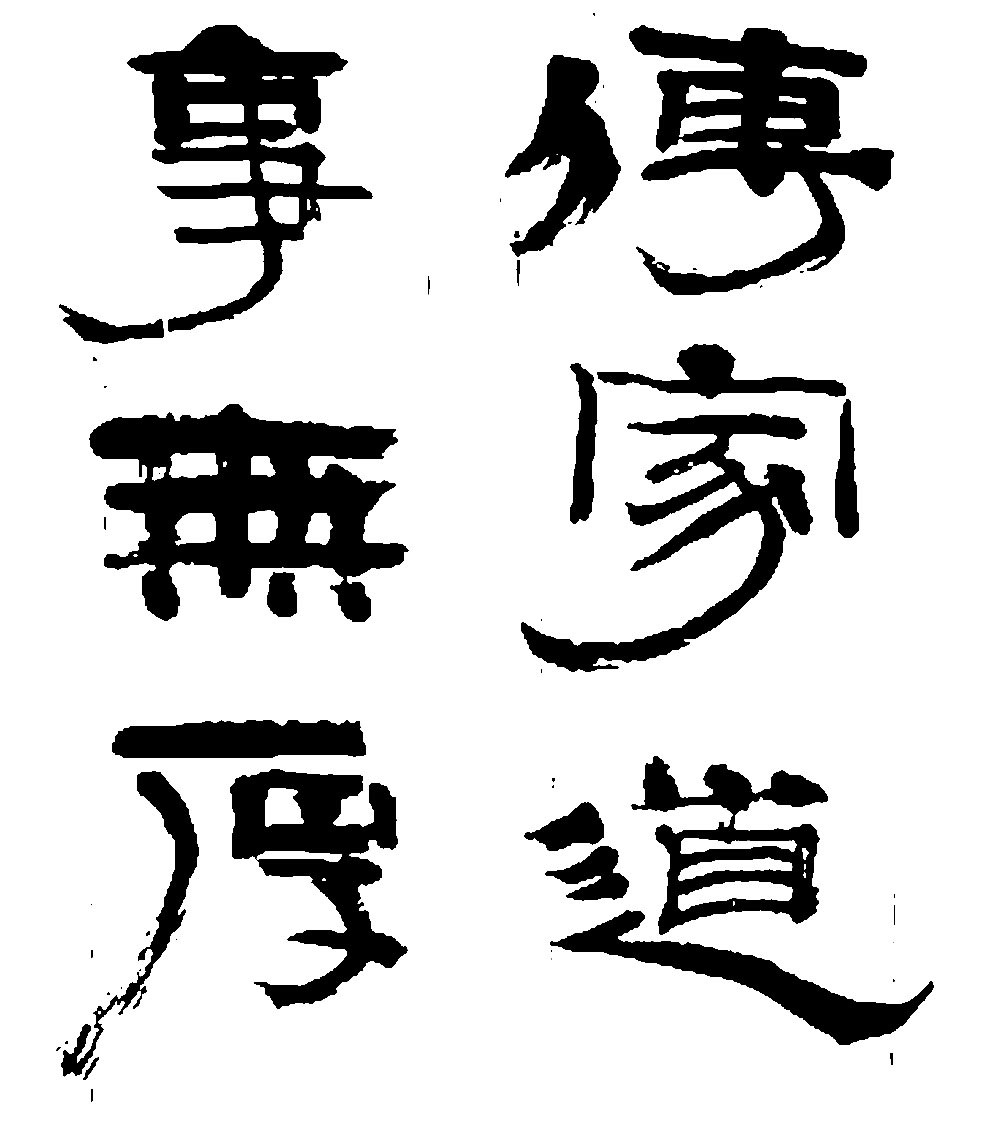 傳家道
事無厚